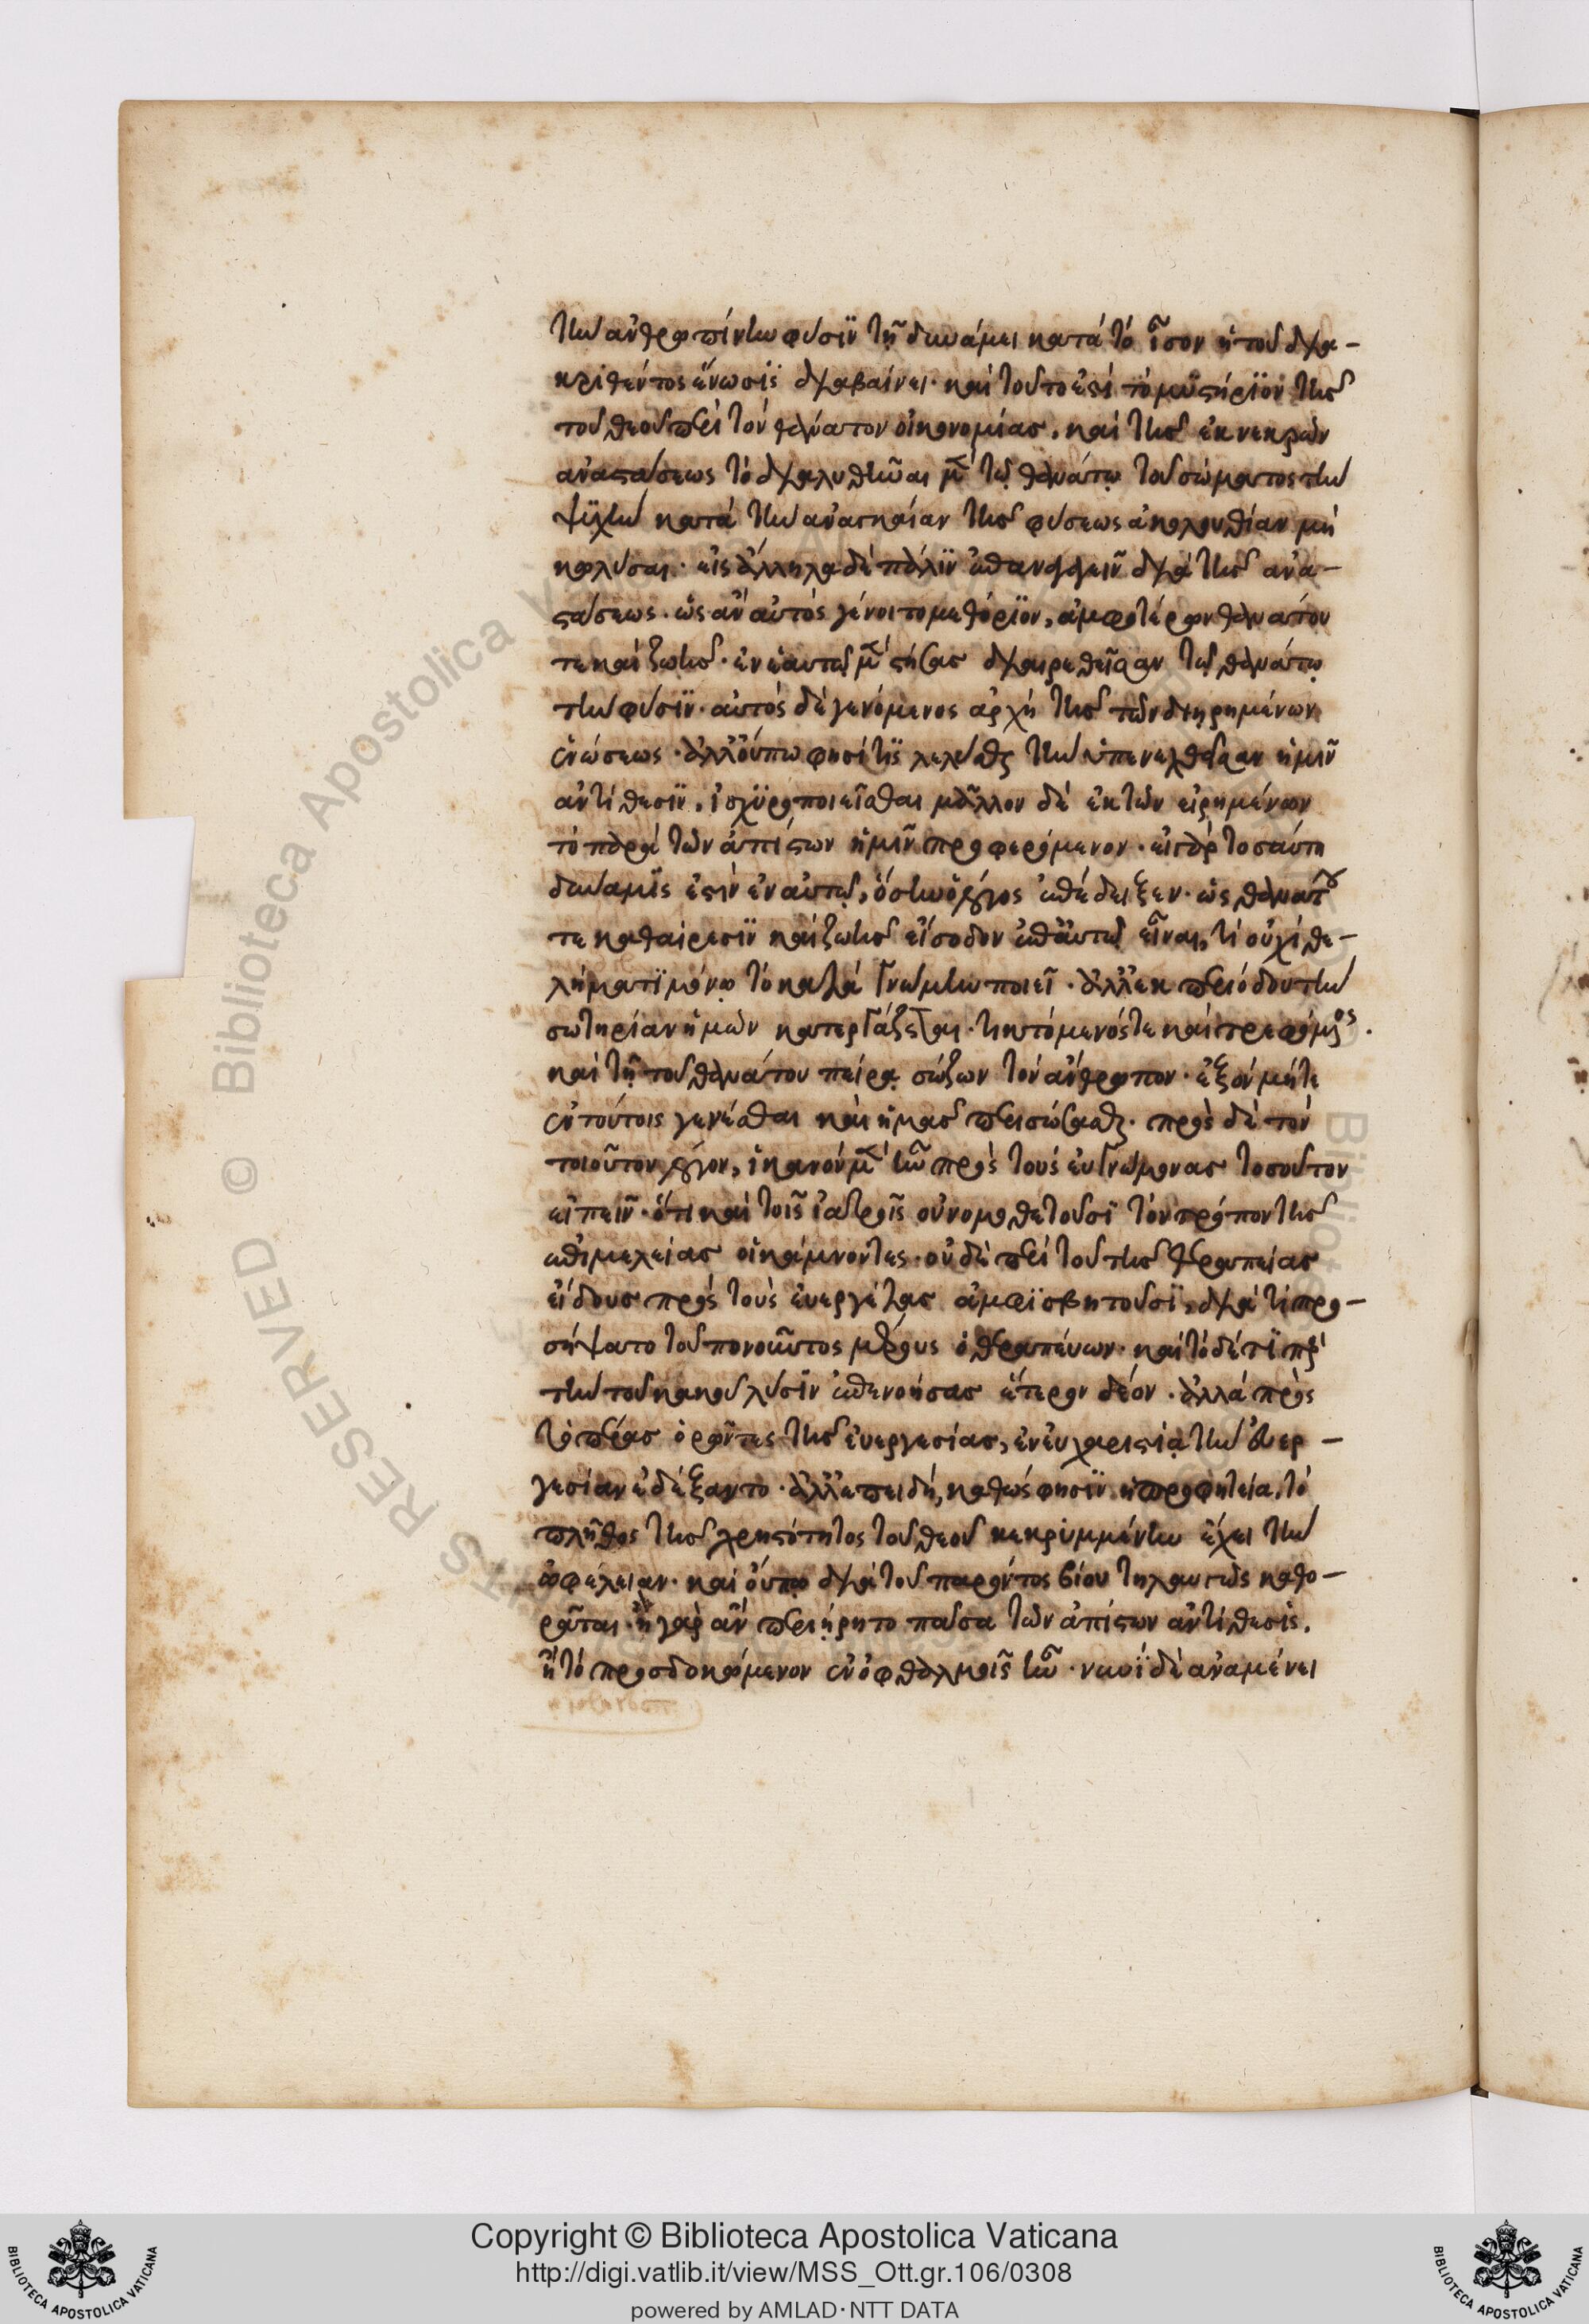 τὴν ἀνθρωπίνην φύσϊν τῆ δυνάμει κατὰ τὸ ἶσον ἡ τοῦ δια-
κριθέντος ἕνωσις διαβαίνει· καὶ τοῦτο ἐστὶ τὸ μυστήριον τῆς
τοῦ θεοῦ περὶ τὸν θάνατον οἰκονομίας, καὶ τῆς ἐκ νεκρῶν
ἀναστάσεως τὸ διαλυθῆναι μὲν τῷ θανάτῳ τοῦ σώματος τὴν
ψϋχὴν κατὰ τὴν ἀναγκαίαν τῆς φύσεως ἀκολουθίαν μὴ
κωλῦσαι· εἰς ἄλληλα δὲ πάλϊν ἐπαναγαγεῖν διὰ τῆς ἀνα-
στάσεως· ὡς ἂν αὐτὸς γένοιτο μεθόριον, ἀμφοτέρων θανάτου
τε καὶ ζωῆς· ἐν ἑαυτῷ μὲν στήσας διαιρεθεῖσαν τῷ θανάτῳ
τὴν φύσϊν· αὐτὸς δὲ γενόμενος ἀρχὴ τῆς τῶν διῃρημένων
ἑνώσεως· ἀλλ' οὔπω φησί τις λελύσθαι τὴν ὑπενεχθεῖσαν ἡμῖν
ἀντίθεσϊν, ἰσχϋροποιεῖσθαι μᾶλλον δὲ ἐκ τῶν εἰρημένων
τὸ παρὰ τῶν ἀπίστων ἡμῖν προφερόμενον· εἰ γὰρ τοσαύτη
δύναμϊς ἐστὶν ἐν αὐτῷ, ὅσην ὁ λόγος ἐπέδειξεν· ὡς θανάτου
τε καθαίρεσϊν καὶ ζωῆς εἴσοδον ἐπ' αὐτῷ εἶναι, τί οὐχὶ θε-
λήματϊ μόνῳ τὸ κατὰ γνώμην ποιεῖ· ἀλλ' ἐκ περιόδου τὴν
σωτηρίαν ἡμῶν κατεργάζεται· τικτόμενός τε καὶ τρεφόμενος.
καὶ τῇ τοῦ θανάτου πείρᾳ σώζων τὸν ἄνθρωπον· ἐξὸν μήτε
ἐν τούτοις γενέσθαι καὶ ἡμᾶς περισώσασθαι· πρὸς δὲ τὸν
τοιοῦτον λόγον, ἱκανὸν μὲν ἦν πρὸς τοὺς εὐγνώμονας τοσοῦτον
εἰπεῖν· ὅτι καὶ τοῖς ἰατροῖς οὐ νομοθετοῦσϊ τὸν τρόπον τῆς
ἐπιμελείας οἱ κάμνοντες· οὐδὲ περὶ τοῦ τῆς θεραπείας
εἴδους πρὸς τοὺς εὐεργέτας ἀμφϊσβητοῦσϊ, διὰ τί προ-
σήψατο τοῦ πονοῦντος μέρους ὁ θεραπεύων· καὶ τὸ δέ τϊ πρὸς
τὴν τοῦ κακοῦ λύσϊν ἐπενοήσας ἕτερον δέον· ἀλλὰ πρὸς
τὸ πέρας ὁρῶντες τῆς εὐεργεσίας, ἐν εὐχαριστίᾳ τὴν εὐερ-
γεσίαν ἐδέξαντο· ἀλλ' ἐπειδὴ, καθώς φησϊν ἡ προφητεία, τὸ
πλῆθος τῆς χρηστότητος τοῦ θεοῦ κεκρϋμμένην ἔχει τὴν
ὠφέλειαν· καὶ οὔπω διὰ τοῦ παρόντος βίου τηλαυγῶς καθο-
ρᾶται· ἦ γὰρ ἂν περιῄρητο πᾶσα τῶν ἀπίστων ἀντίθεσις,
εἰ τὸ προσδοκώμενον ἐν ὀφθαλμοῖς ἦν· νυνῒ δὲ ἀναμένει
Copyright © Biblioteca Apostolica Vaticana
http://digi.vatlib.it/view/MSS_Ott.gr.106/0308
powered by AMLAD·NTT DATA